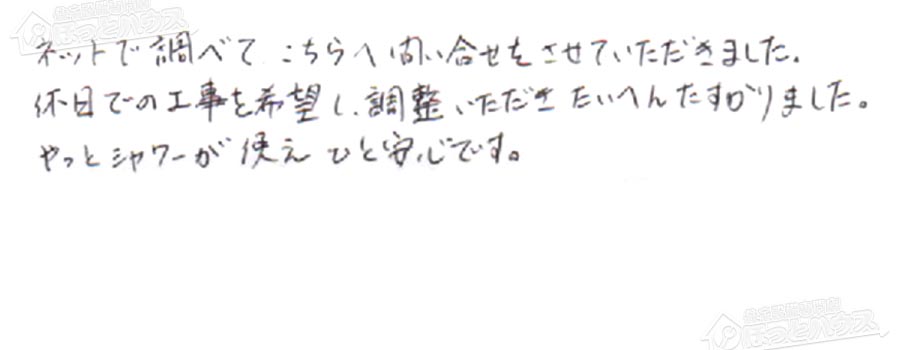 ネットで調べて こちらへ問い合せをさせていただきました。
休日での工事を希望し、調整いただき たいへんたすかりました。
やっとシャワーが使え ひと安心です。
ほっとハウス
ほっとハウス